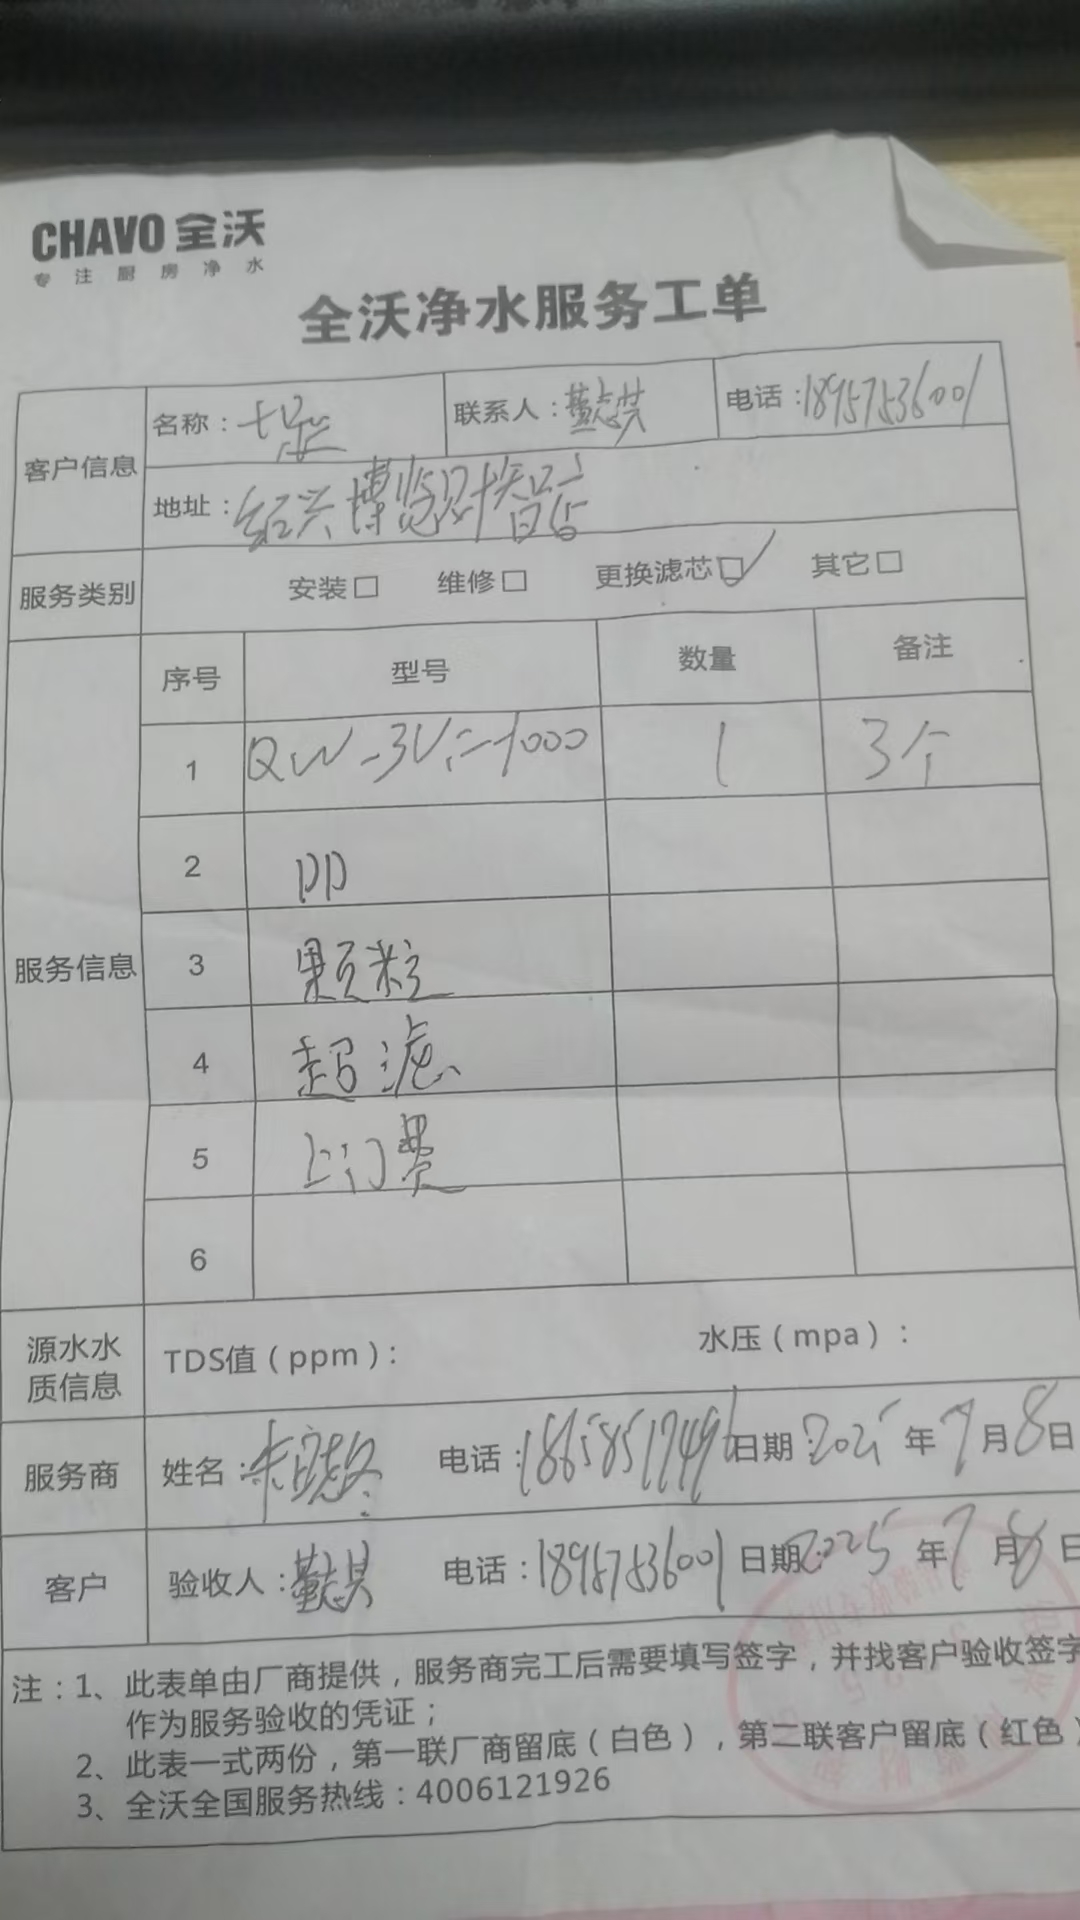 CHAVO 全沃
专注厨房净水
全沃净水服务工单
客户信息
名称：
联系人：董志其
电话：18957536001
地址：绍兴博览
服务类别
安装□ 维修□ 更换滤芯□✓ 其它□
服务信息
序号 型号 数量 备注
1 QW-3V 1000 1 3个
2 PP
3 颗粒
4 超滤
5 上门费
6
源水水质信息
TDS值（ppm）： 水压（mpa）：
服务商
姓名：朱 电话：18658517496 日期：2025年7月8日
客户
验收人：董志其 电话：18957536001 日期：2025年7月8日
注：1、此表单由厂商提供，服务商完工后需要填写签字，并找客户验收签字
作为服务验收的凭证；
2、此表一式两份，第一联厂商留底（白色），第二联客户留底（红色）
3、全沃全国服务热线：4006121926